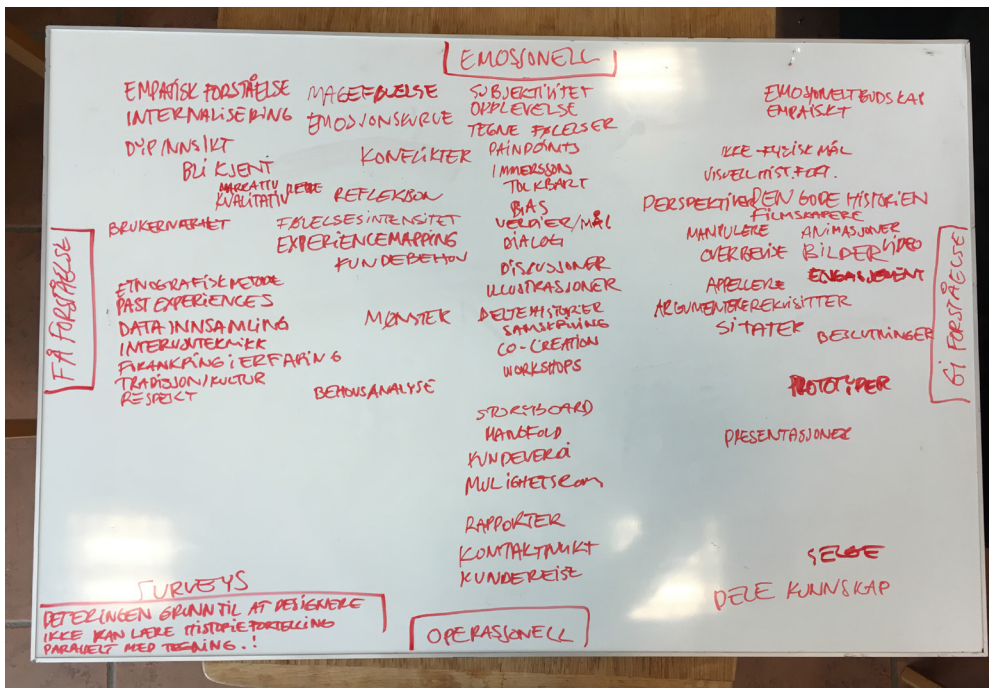 EMOSJONELL
EMPATISK FORSTÅELSE
INTERNALISERING
DYP INNSIKT
BLI KJENT
NARRATIV REISE
KVALITATIV
BRUKERNÆRHET
ETNOGRAFISK METODE
PAST EXPERIENCES
DATA INNSAMLING
INTERVJUTEKNIKK
FORANKRING I ERFARING
TRADISJON/KULTUR
RESPEKT
MAGEFØLELSE
EMOSJONSKURVE
KONFLIKTER
REFLEKSJON
FØLELSESINTENSITET
EXPERIENCEMAPPING
KUNDEBEHOV
MØNSTER
BEHOVSANALYSE
SUBJEKTIVITET
OPPLEVELSE
TEGNE FØLELSER
PAINPOINTS
IMMERSJON
TOLKBART
BIAS
VERDIER/MÅL
DIALOG
DISCUSJONER
ILLUSTRASJONER
DELTE HISTORIER
SAMSKRIVING
CO-CREATION
WORKSHOPS
STORYBOARD
MANGFOLD
KUNDEVERDI
MULIGHETSROM
RAPPORTER
KONTAKTPUNKT
KUNDEREISE
EMOSJONELT BUDSKAP
EMPATISKT
IKKE-FYSISK MÅL
VISUELL HIST. FORT.
PERSPEKTIVER DEN GODE HISTORIEN
FILMSKAPERE
MANIPULERE ANIMASJONER
OVERBEVISE BILDER VIDEO
APPELLERE ENGASJEMENT
ARGUMENTERE REKVISITTER
SITATER BESLUTNINGER
PROTOTYPER
PRESENTASJONER
SELGE
DELE KUNNSKAP
FÅ FORSTÅELSE
GI FORSTÅELSE
SURVEYS
DET ER INGEN GRUNN TIL AT DESIGNERE
IKKE KAN LÆRE HISTORIEFORTELLING
PARALELT MED TEGNING.!
OPERASJONELL